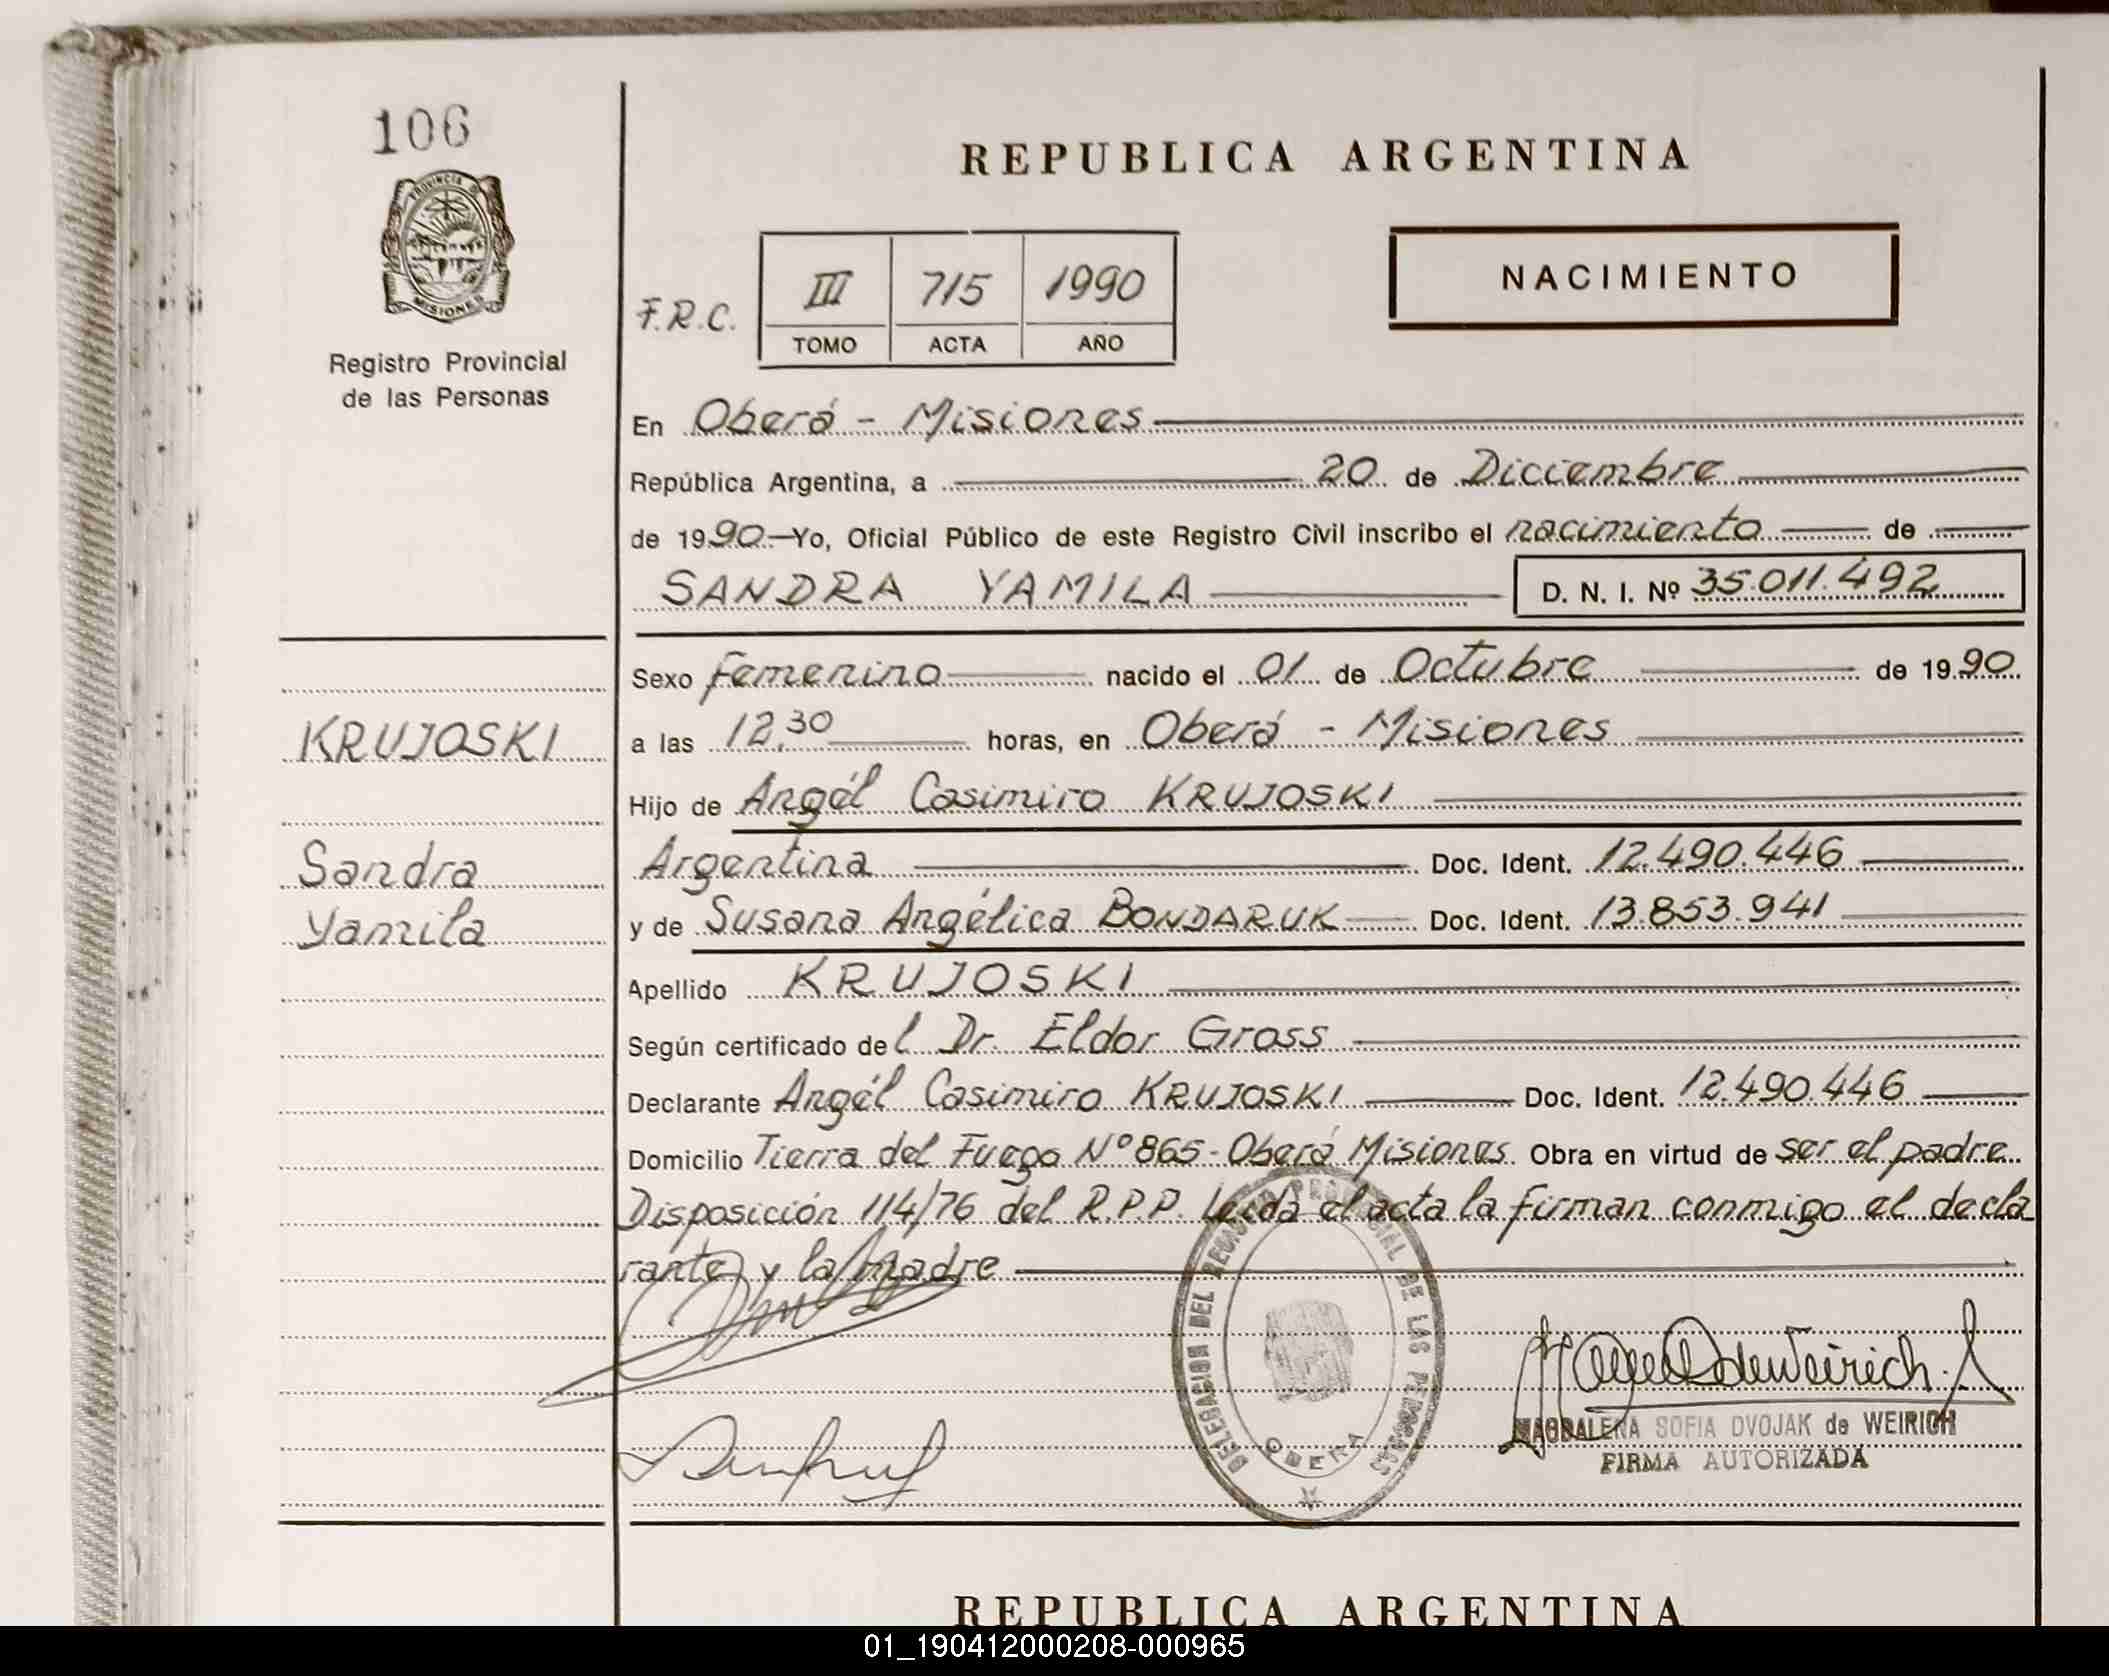 106
PROVINCIA D
MISIONES
Registro Provincial
de las Personas
REPUBLICA ARGENTINA
F.R.C.
III 715 1990
TOMO ACTA AÑO
NACIMIENTO
En Oberá - Misiones
República Argentina, a 20 de Diciembre
de 1990 Yo, Oficial Público de este Registro Civil inscribo el nacimiento de
SANDRA YAMILA D. N. I. Nº 35.011.492
Sexo femenino nacido el 01 de Octubre de 1990
KRUJOSKI
a las 12,30 horas, en Oberá - Misiones
Hijo de Angél Casimiro KRUJOSKI
Sandra
Argentina Doc. Ident. 12.490.446
Yamila
y de Susana Angélica BONDARUK Doc. Ident. 13.853.941
Apellido KRUJOSKI
Según certificado del Dr. Eldor Gross
Declarante Angél Casimiro KRUJOSKI Doc. Ident. 12.490.446
Domicilio Tierra del Fuego Nº 865 - Oberá Misiones. Obra en virtud de ser el padre
Disposición 114/76 del R.P.P. Leida el acta la firman conmigo el decla
rante y la madre
DELEGACION DEL REGISTRO PROVINCIAL DE LAS PERSONAS
OBERA
MAGDALENA SOFIA DVOJAK de WEIRICH
FIRMA AUTORIZADA
REPUBLICA ARGENTINA
01_190412000208-000965